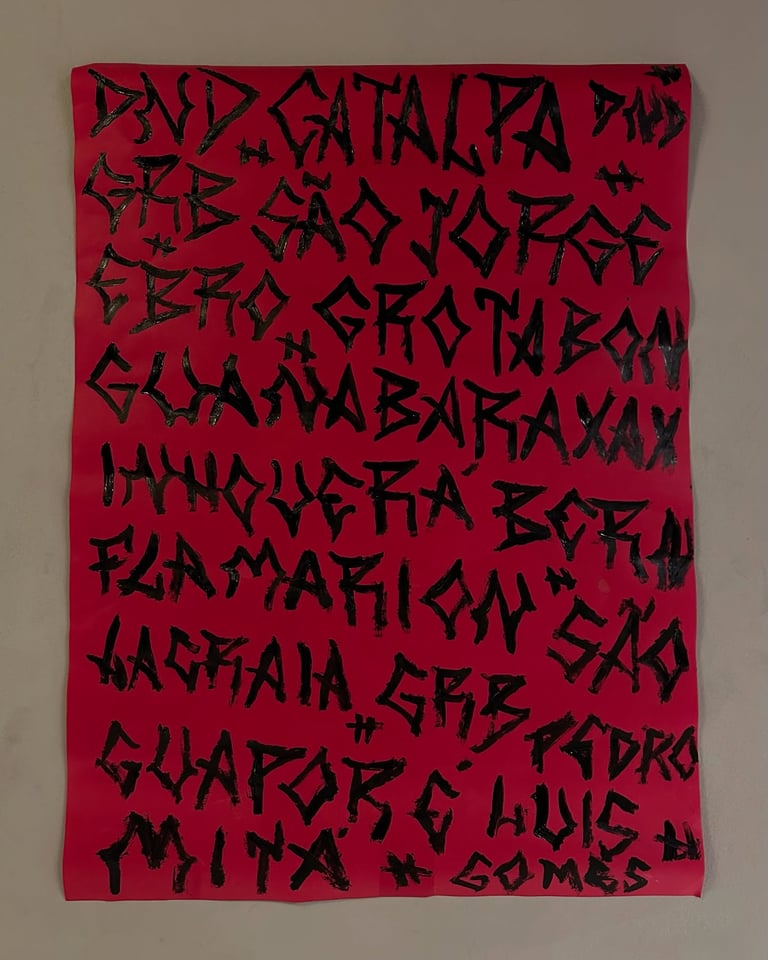 DND # CATALPA DND #
GRB SÃO JORGE #
# EBRO GROTABON
# GUANABARAXAX
INHOUERÁ BERN
FLAMARION # SÃO
LACRAIA GRB
# PEDRO
GUAPORÉ LUIS #
MITÁ # GOMES